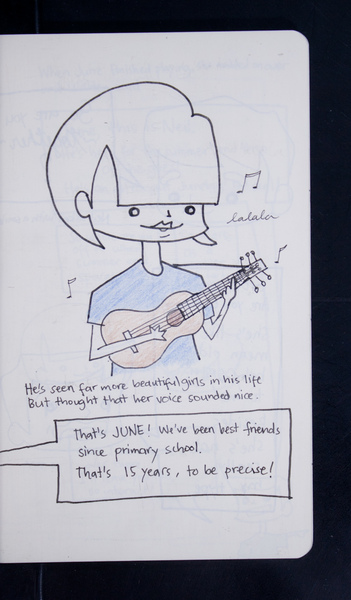 lalala
He's seen far more beautiful girls in his life
But thought that her voice sounded nice.
That's JUNE! We've been best friends
since primary school.
That's 15 years, to be precise!